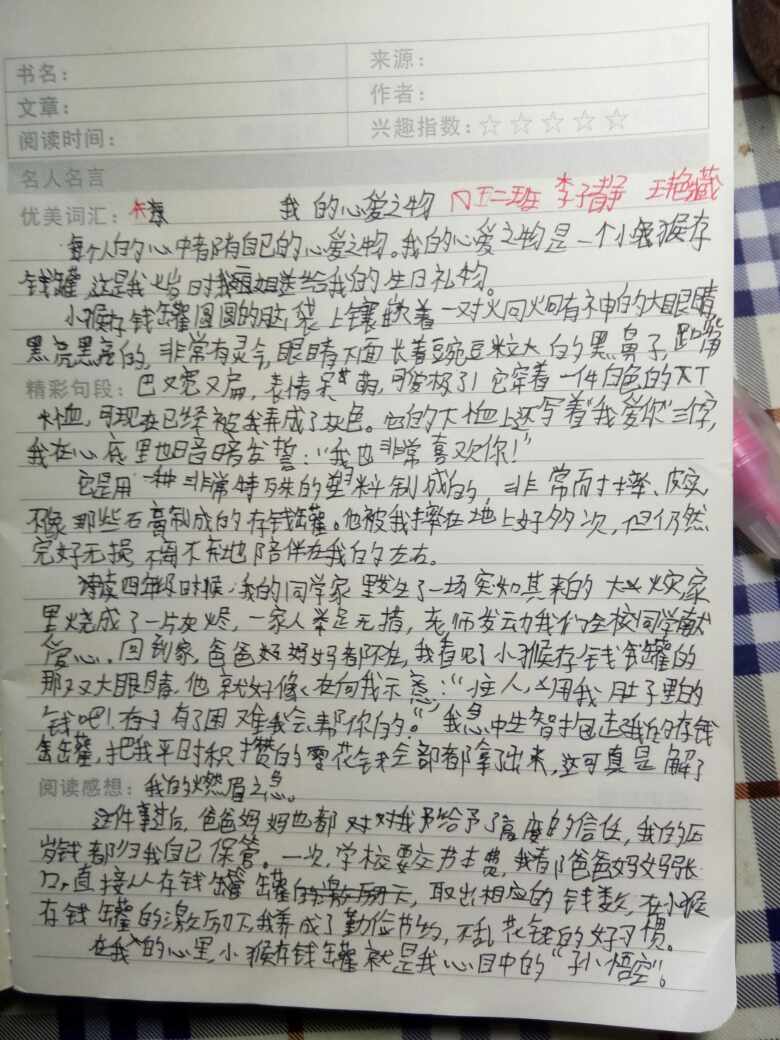 书名：
来源：
文章：
作者：
阅读时间：
兴趣指数：☆☆☆☆☆
名人名言
优美词汇：
我的心爱之物 四五二班 李子静 王艳藏
每个人的心中都有自已的心爱之物。我的心爱之物是一个小猴存
钱罐，这是我七岁时我姐姐送给我的生日礼物。
小猴存钱罐圆圆的脑袋上镶嵌着一对火同火同有神的大眼睛
黑亮黑亮的，非常有灵气，眼睛下面长着豌豆粒大的黑鼻子，
精彩句段：
巴又宽又扁，表情呆萌，可爱极了！它穿着一件白色的大T
恤，可现在已经被我弄成了灰色。它的大恤上还写着“我爱你”三字，
我在心底里也暗暗发誓：“我也非常喜欢你！”
它是用一种非常特殊的塑料制成的，非常耐摔、皮，
不像那些石膏制成的存钱罐。他被我摔在地上好多次，但仍然
完好无损，不离不弃地陪伴在我的左右。
读四年级时候，我的同学家里发生了一场突如其来的大火灾，家
里烧成了一片灰烬，一家人举足无措，老师发动我们全校同学献
爱心。回到家，爸爸妈妈都不在，我看见了小猴存钱罐的
那双大眼睛，他就好像在向我示意：“主人，用我肚子里的
钱吧！有了困难我会帮你的。”我急中生智抱起我的存钱
罐，把我平时积攒的零花钱全部都拿出来，这可真是解了
阅读感想：
我的燃眉之急。
这件事过后，爸爸妈妈也都对我给予了高度的信任，我的压
岁钱都归我自已保管。一次，学校要交书本费，我都陪爸爸妈妈张
口，直接从存钱罐，取出相应的钱数，在小猴
存钱罐的激励下，我养成了勤俭节约，不乱花钱的好习惯。
在我的心里，小猴存钱罐就是我心目中的“孙悟空”。